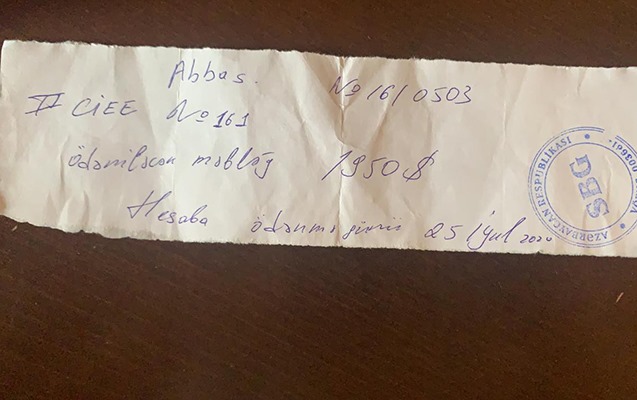 Abbas. № 161 0503
II CiEE № 161
ödəniləcək məbləğ 1950 $
Hesaba ödənmə 25 iyul 2020
AZƏRBAYCAN RESPUBLİKASI
SBG